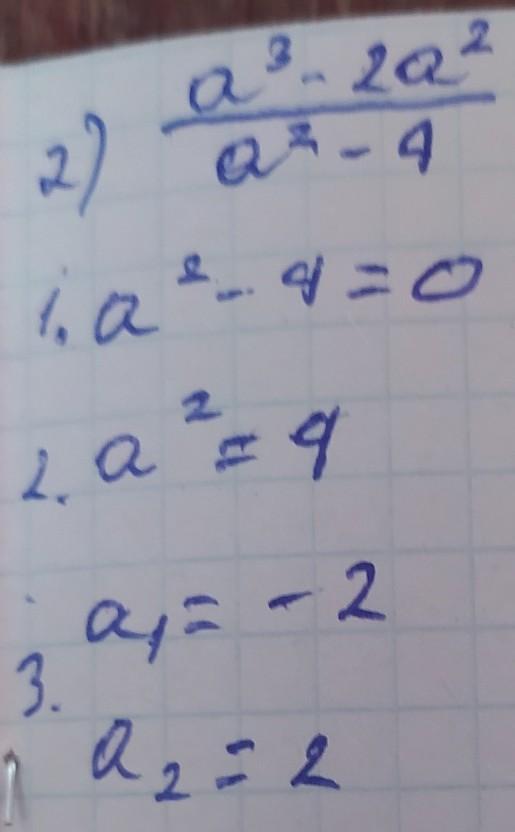 2) a³ - 2a² / a² - 4
1. a² - 4 = 0
2. a² = 4
3. a₁ = - 2
a₂ = 2